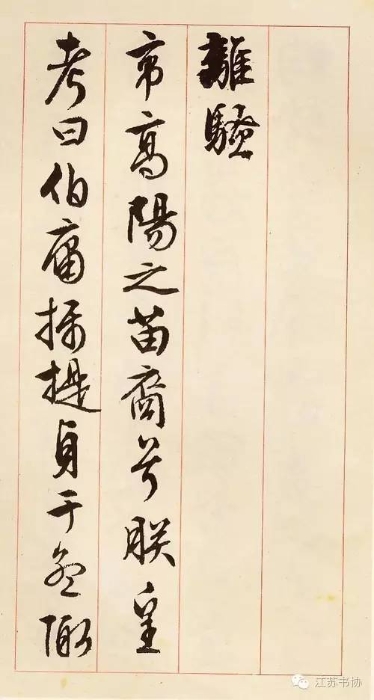 離騷
帝高陽之苗裔兮朕皇
考曰伯庸攝提貞于孟陬
江苏书协